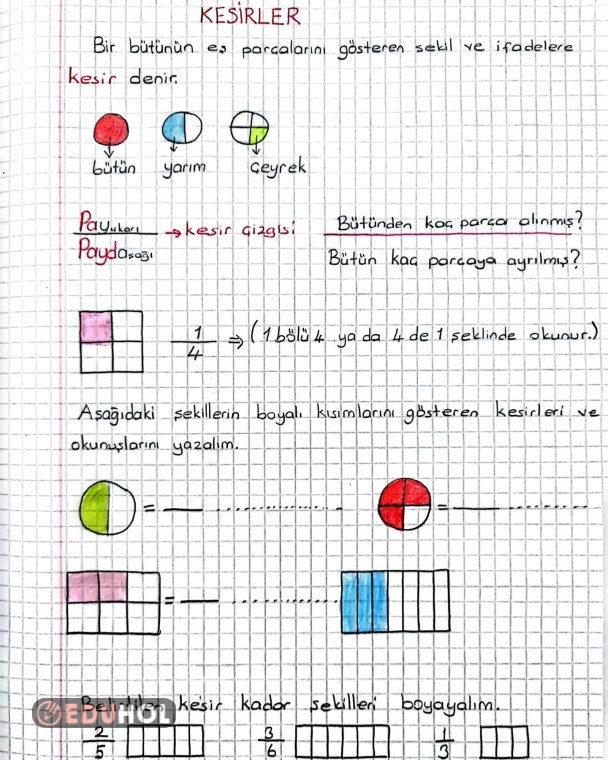 KESİRLER
Bir bütünün eş parçalarını gösteren şekil ve ifadelere
kesir denir.
bütün yarım çeyrek
Payyukarı → kesir çizgisi Bütünden kaç parça alınmış?
Paydaşağı Bütün kaç parçaya ayrılmış?
1
4 ⇒ (1 bölü 4 ya da 4 de 1 şeklinde okunur.)
Aşağıdaki şekillerin boyalı kısımlarını gösteren kesirleri ve
okunuşlarını yazalım.
= ___ .................... = ___ ....................
= ___ ....................
Belirtilen kesir kadar şekilleri boyayalım.
2 3 1
5 6 3
EDUHOL